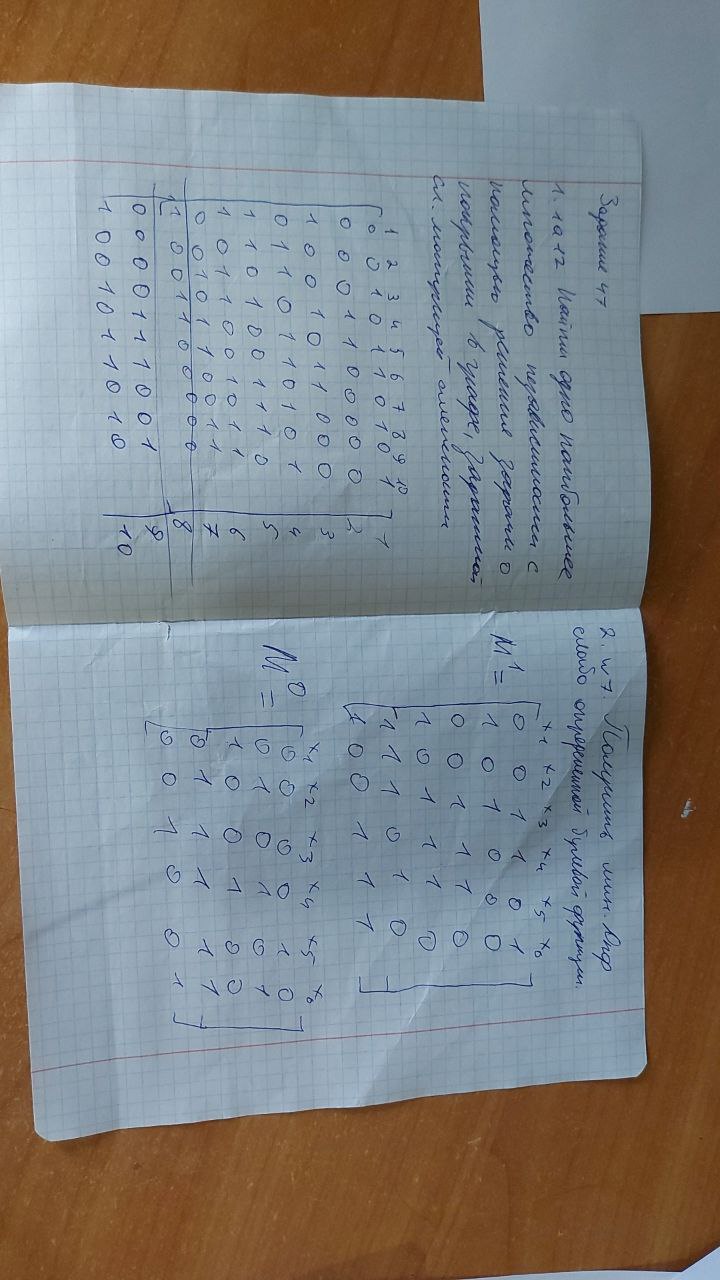 Задание 47
1. 1a12 Найти одно наибольшее
множество независимости с
помощью решения задачи о
покрытии в графе, заданной
сл. матрицей смежности
1 2 3 4 5 6 7 8 9 10
0 0 1 0 1 1 0 1 0 1 1
0 0 0 1 1 0 0 0 0 0 2
1 0 0 1 0 1 1 0 0 0 3
0 1 1 0 1 1 0 1 0 1 4
1 1 0 1 0 0 1 1 1 0 5
1 0 1 1 0 0 1 0 1 1 6
0 0 1 0 1 1 0 0 1 1 7
1 0 0 1 1 0 0 0 0 0 8
0 0 0 0 1 1 1 0 0 1 9
1 0 0 1 0 1 1 0 1 0 10
2. w7. Получить мин. Днф
слабо определенной булевой функции.
x1 x2 x3 x4 x5 x6
M¹ =
0 0 1 1 0 1
1 0 1 0 0 0
0 0 1 1 1 0
1 0 1 1 1 0
1 1 1 0 1 0
1 0 0 1 1 1
x1 x2 x3 x4 x5 x6
M⁰ =
0 0 0 0 1 0
0 1 0 1 0 1
1 0 0 1 0 0
0 1 1 1 1 1
0 0 1 0 0 1